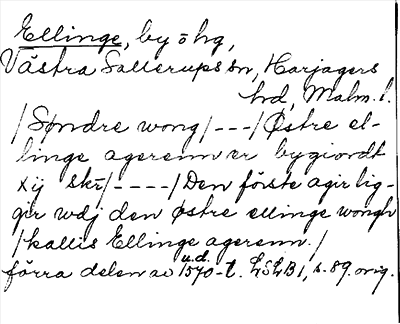 Ellinge, by o hg,
Västra Sallerups sn, Harjagers
hd, Malm. l.
/Søndre wong/---/Østre el-
linge agerenn er bygiordt
xij skr/----/Den förste agir lig-
gir wdj den østre ellinge wongh
/kallis Ellinge agerenn./
förra delen av u.d. 1570-t. LSLB1, s. 89. orig.